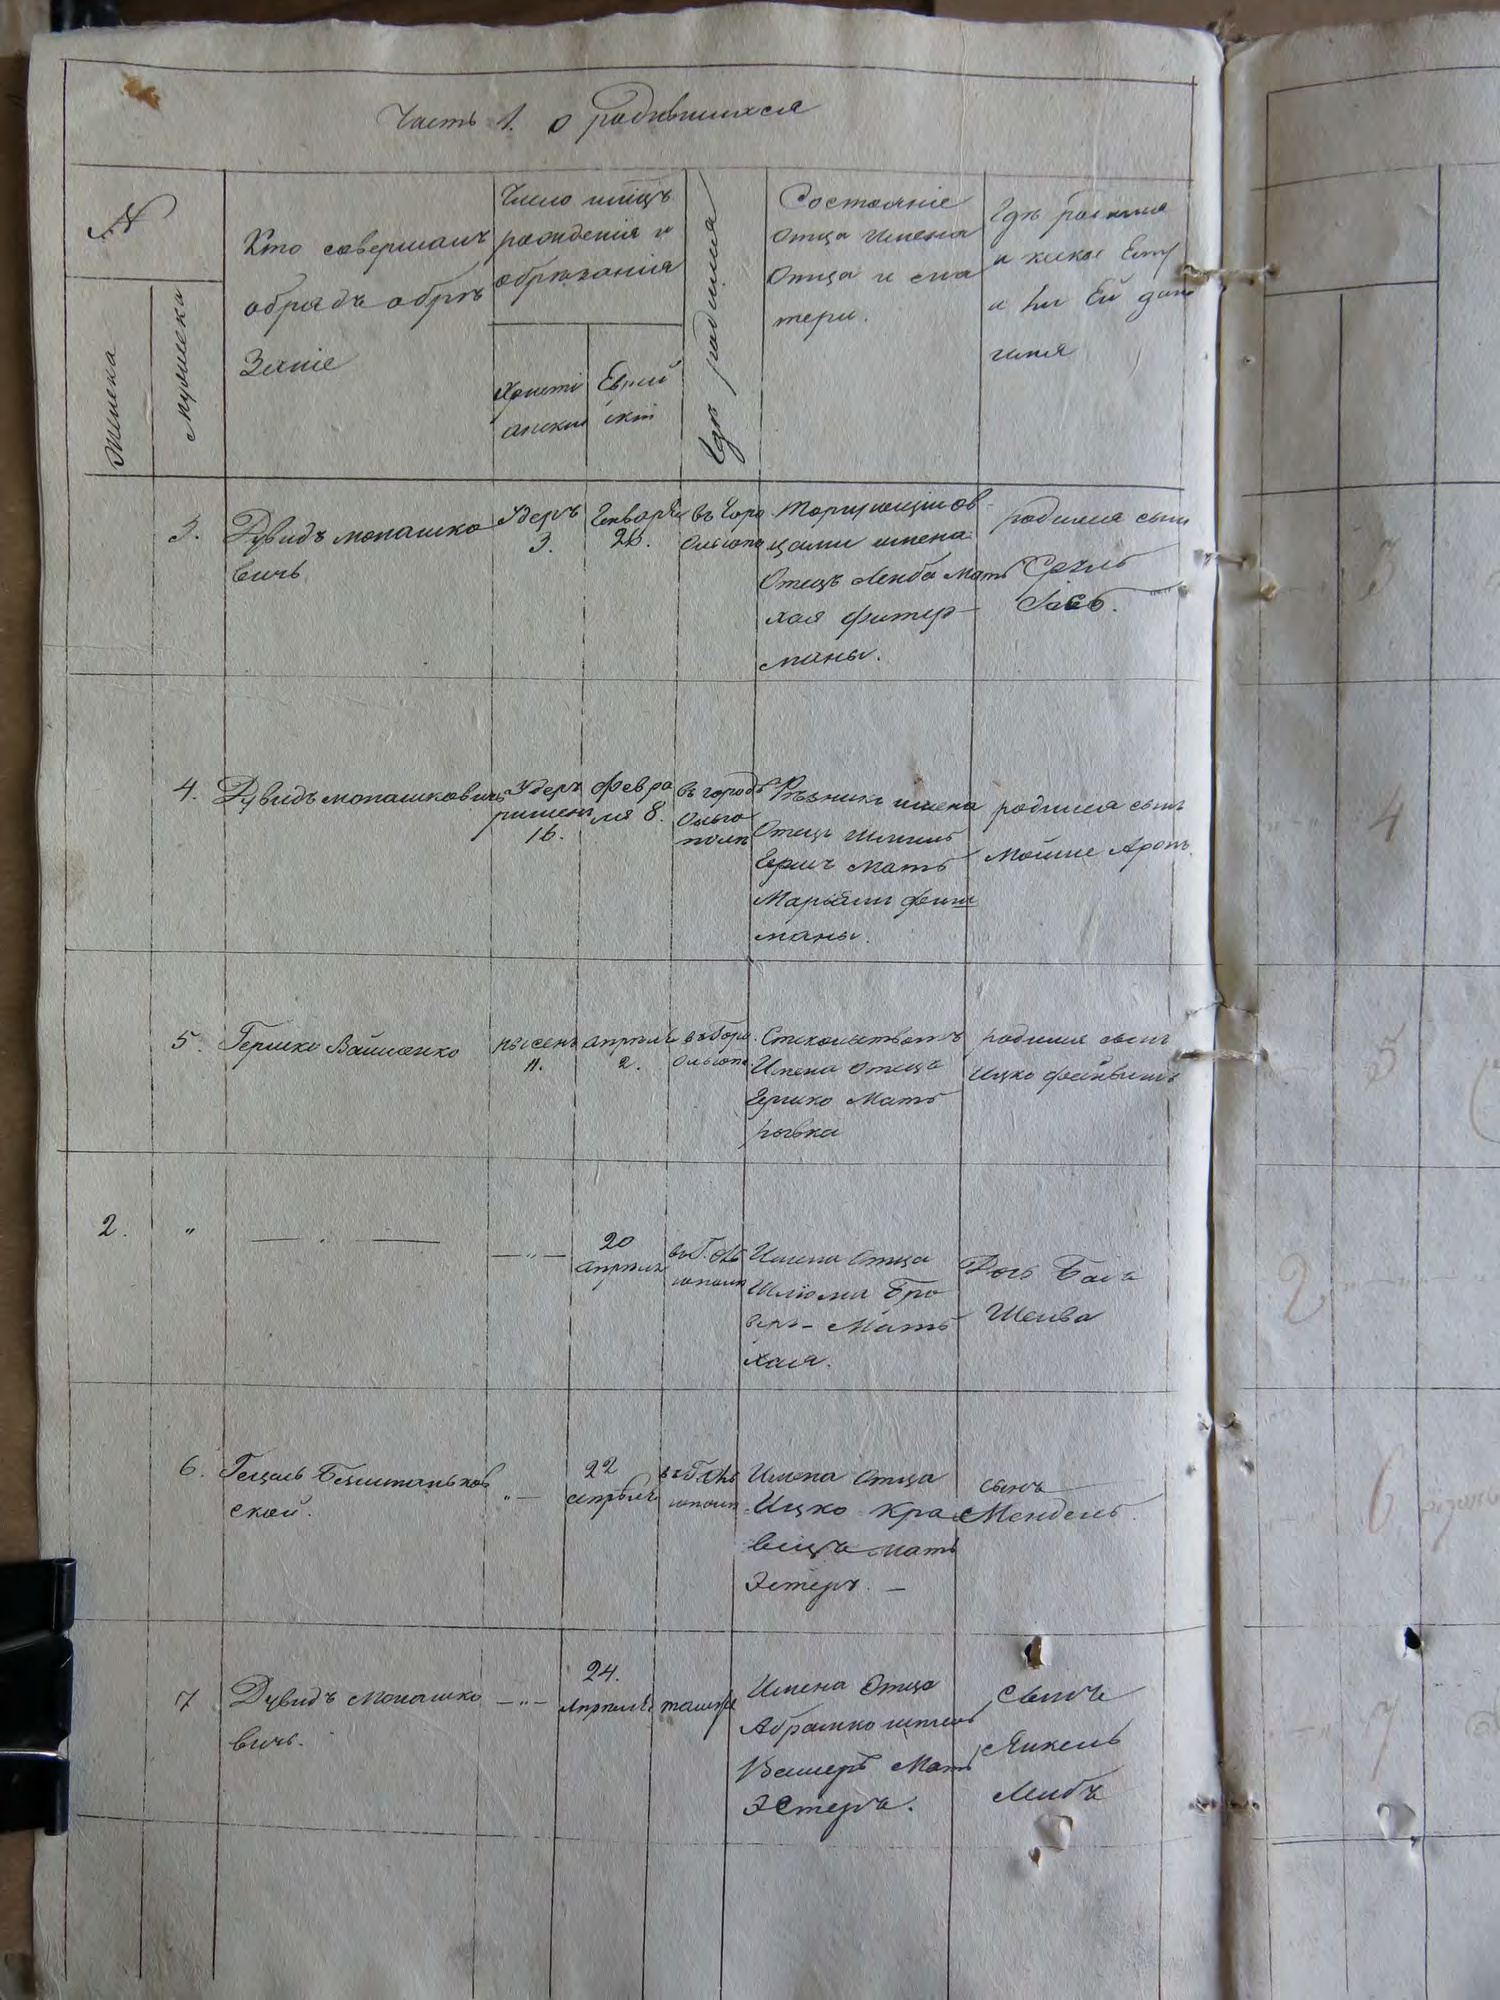 Часть 1. о родившихся
№
Женска
Мужеска
Кто совершалъ
обрядъ обрѣ
Заніе
Число мѣсцъ
рожденія и
обрѣзанія
Христі
анскій
Еврей
скій
Гдѣ родился
Состояніе
отца имена
Отца и ма
тери.
и какое Ему
и ли Ей дано
имя
3.
Дувидъ мопашко
вичь
Удеръ
3.
Генваря
26.
въ Горо
Ольгопо
Торгующимов
цами имена
Отецъ Лейба Мать
Хая фитер
маны.
родился сынъ
Сруль
4.
Дувидъ мопашковичь
Удеръ
ришенъ
16.
Февра
ля 8.
въ городѣ
Ольго
полѣ
Рѣзникъ имена
Отецъ Шмиль
Гершъ Мать
Марьями фиш
маны.
родился сынъ
Мойше Аронъ
5.
Гершко Вайманко
нысенъ
11.
апрѣля
2.
въ Горо
Ольгопо
Имена отца
Гершко Мать
рывка
родился сынъ
Ицко Файвишъ
2.
"
— " —
— " —
20
апрѣля
въ Г. Оль
гополѣ
Имена отца
Шлюми Бро
веръ - Мать
Хая.
Дочь Бася
Шейва
6.
Гецель Берштаньков
ской.
" —
22
апрѣля
въ Г. Оль
гополѣ
Имена отца
Ицко Кра
вецъ мать
Эстеръ. —
сынъ
Мендель.
7
Дувидъ Мопашко
вичь.
— " —
24.
Апрѣля
тамже
Имена Отца
Абрамко шмиль
Вашеръ Мать
Эстеръ.
Сынъ
Янкель
Лейбъ
3
4
5
2
6
7